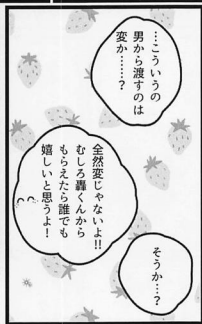 …こういうの
男から渡すのは
変か……？
全然変じゃないよ!!
むしろ轟くんから
もらえたら誰でも
嬉しいと思うよ！
そうか…？